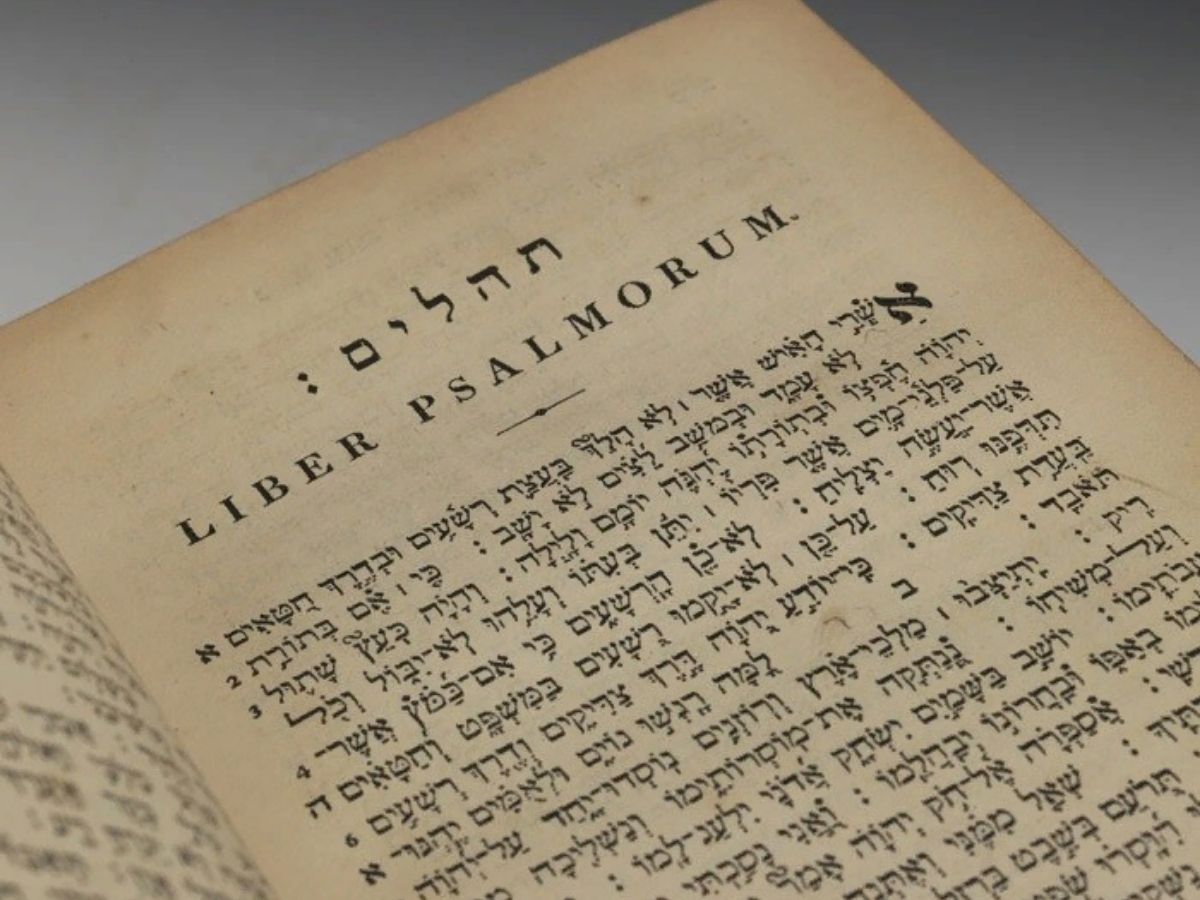 תהלים :
LIBER PSALMORUM.
אַשְׁרֵי הָאִישׁ אֲשֶׁר ׀ לֹא הָלַךְ בַּעֲצַת רְשָׁעִים וּבְדֶרֶךְ חַטָּאִים א
לֹא עָמָד וּבְמוֹשַׁב לֵצִים לֹא יָשָׁב : כִּי ׀ אִם בְּתוֹרַת 2
יְהוָה חֶפְצוֹ וּבְתוֹרָתוֹ יֶהְגֶּה יוֹמָם וָלָיְלָה : וְהָיָה כְּעֵץ שָׁתוּל 3
עַל־פַּלְגֵי־מָיִם אֲשֶׁר פִּרְיוֹ ׀ יִתֵּן בְּעִתּוֹ וְעָלֵהוּ לֹא־יִבּוֹל וְכֹל
אֲשֶׁר־יַעֲשֶׂה יַצְלִיחַ : לֹא־כֵן הָרְשָׁעִים כִּי אִם־כַּמֹּץ אֲשֶׁר־ 4
תִּדְּפֶנּוּ רוּחַ : עַל־כֵּן ׀ לֹא־יָקֻמוּ רְשָׁעִים בַּמִּשְׁפָּט וְחַטָּאִים ה
בַּעֲדַת צַדִּיקִים : כִּי־יוֹדֵעַ יְהוָה דֶּרֶךְ צַדִּיקִים וְדֶרֶךְ רְשָׁעִים 6
תֹּאבֵד :
ב
לָמָּה רָגְשׁוּ גוֹיִם וּלְאֻמִּים יֶהְגּוּ־ א
רִיק : יִתְיַצְּבוּ ׀ מַלְכֵי־אֶרֶץ וְרוֹזְנִים נוֹסְדוּ־יָחַד עַל־יְהוָה
וְעַל־מְשִׁיחוֹ : נְנַתְּקָה אֶת־מוֹסְרוֹתֵימוֹ וְנַשְׁלִיכָה
עֲבֹתֵימוֹ : יוֹשֵׁב בַּשָּׁמַיִם יִשְׂחָק אֲדֹנָי יִלְעַג־לָמוֹ :
בְאַפּוֹ וּבַחֲרוֹנוֹ יְבַהֲלֵמוֹ : וַאֲנִי נָסַכְתִּי
אֲסַפְּרָה אֶל־חֹק יְהוָה אָמַר
שְׁאַל מִמֶּנִּי וְאֶתְּנָה
תְּרֹעֵם בְּשֵׁבֶט
הִוָּסְרוּ